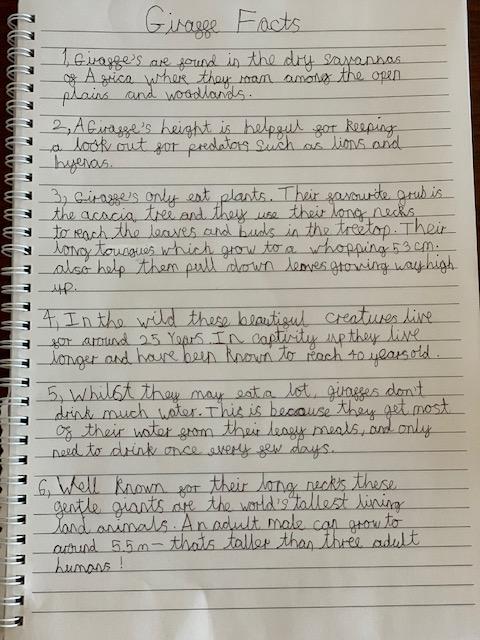 Giraffe Facts
1, Giraffe's are found in the dry savannas
of Africa where they roam among the open
plains and woodlands.
2, A Giraffe's height is helpful for keeping
a look out for predators such as lions and
hyenas.
3, Giraffe's only eat plants. Their favourite grub is
the acacia tree and they use their long necks
to reach the leaves and buds in the treetop. Their
long toungues which grow to a whopping 53 cm.
also help them pull down leaves growing way high
up.
4, In the wild these beautiful creatures live
for around 25 Years. In captivity up they live
longer and have been known to reach 40 years old.
5, Whilst they may eat a lot, giraffes don't
drink much water. This is because they get most
of their water from their leafy meals, and only
need to drink once every few days.
6, Well known for their long necks these
gentle giants are the world's tallest lining
land animals. An adult male can grow to
around 5.5m - thats taller than three adult
humans!